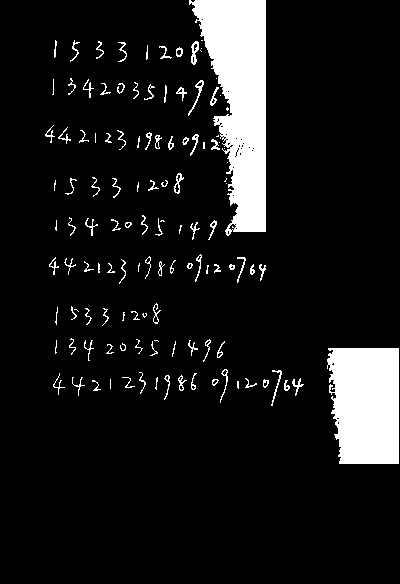 15331208
13420351496
44212319860912
15331208
13420351496
442123198609120764
15331208
13420351496
442123198609120764